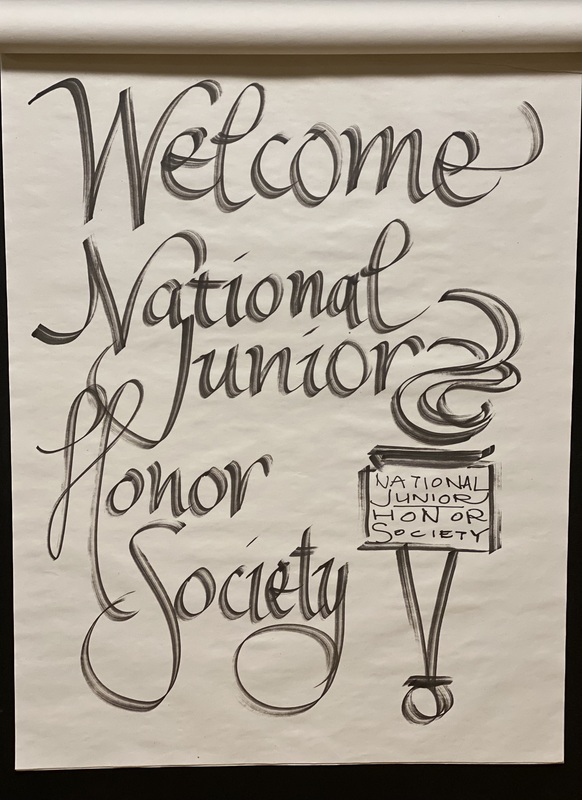 Welcome
National
Junior
Honor
Society
NATIONAL
JUNIOR
HONOR
SOCIETY